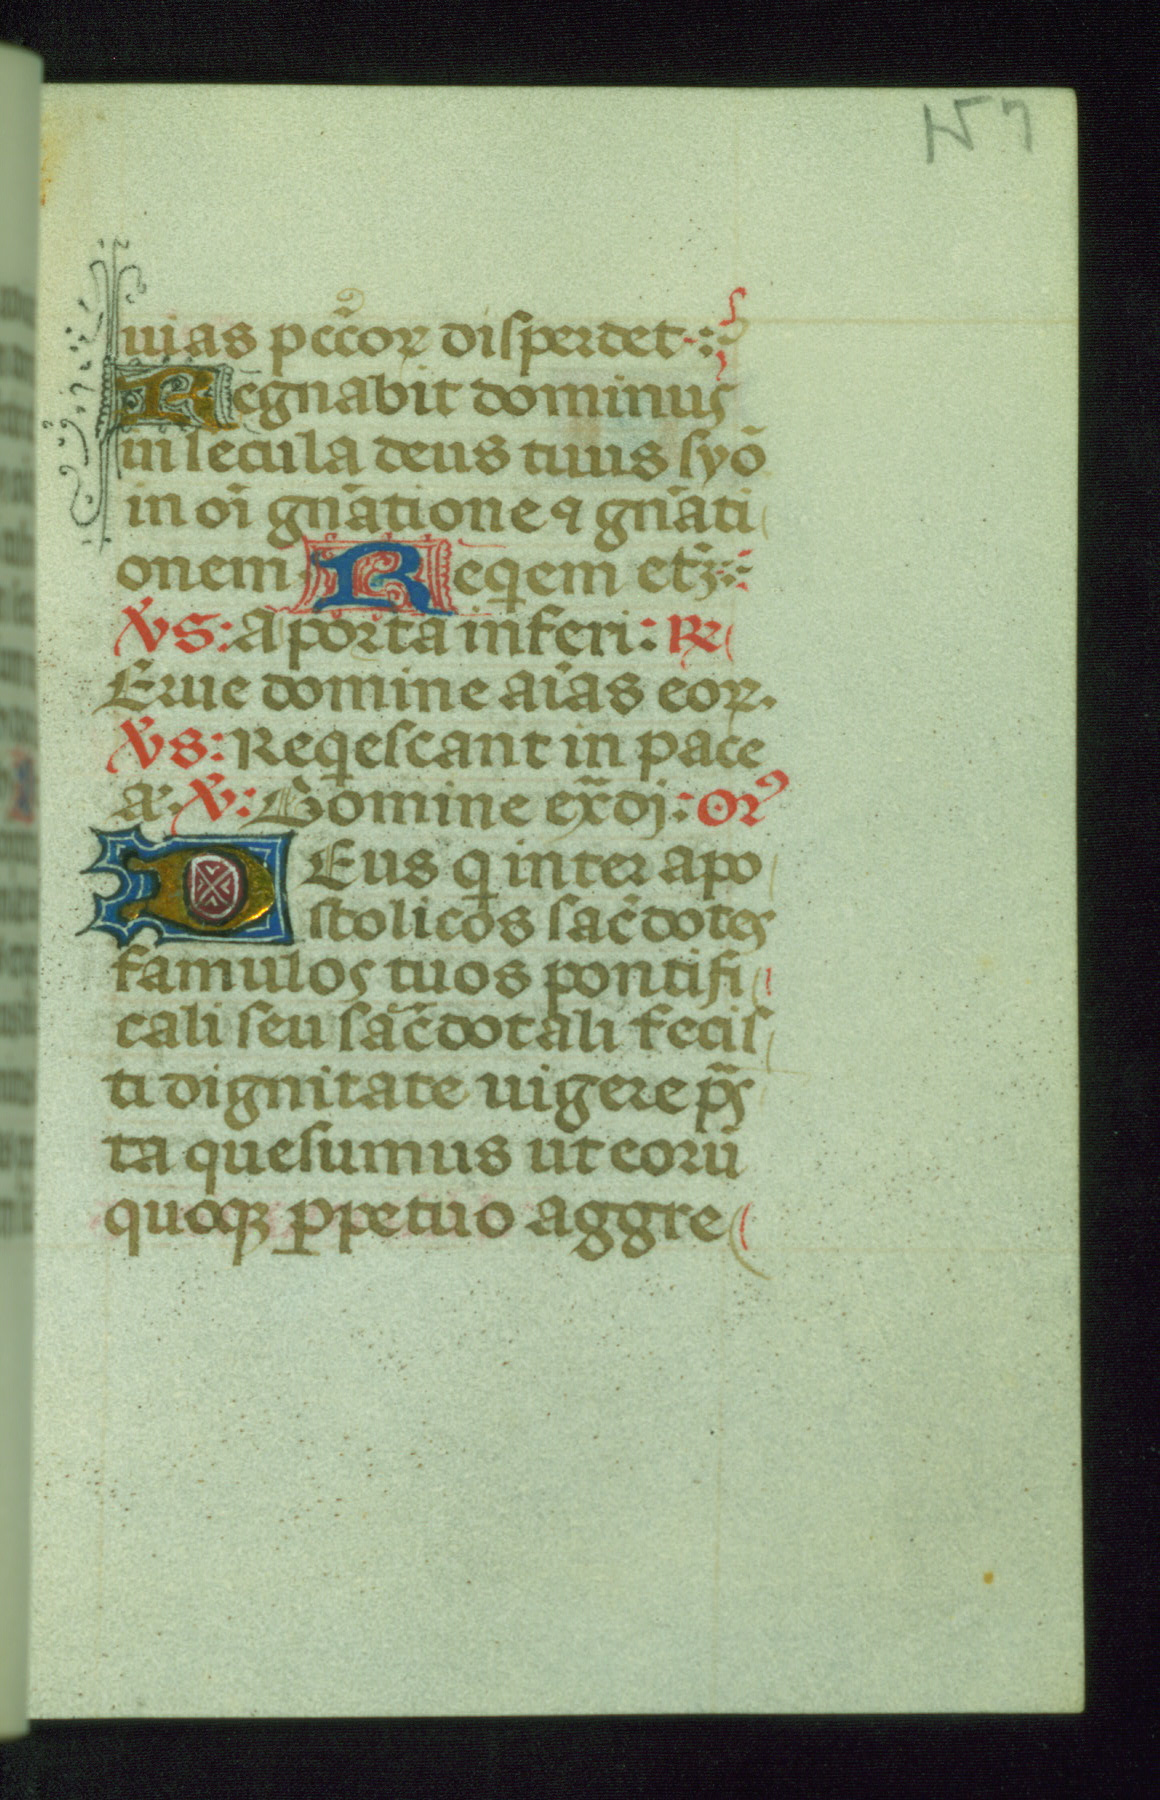 157
uias pcc̄oꝝ disperdet·:
Regnabit dominus
in secula deus tuus syō
in oī gnātione ⁊ gnāti
onem Reqem etꝫ:
V̄s: A porta inferi: R̄
Erue domine aīas eoꝝ.
V̄s: Reqescant in pace
a. V̄: Domine ex̄di: Orꝰ
Deus q inter apo
stolicos sac̄dotes
famulos tuos pontifi
cali seu sac̄dotali fecis
ti dignitate uigere p̄s
ta quesumus ut eorū
quoqꝫ ꝑpetuo aggre